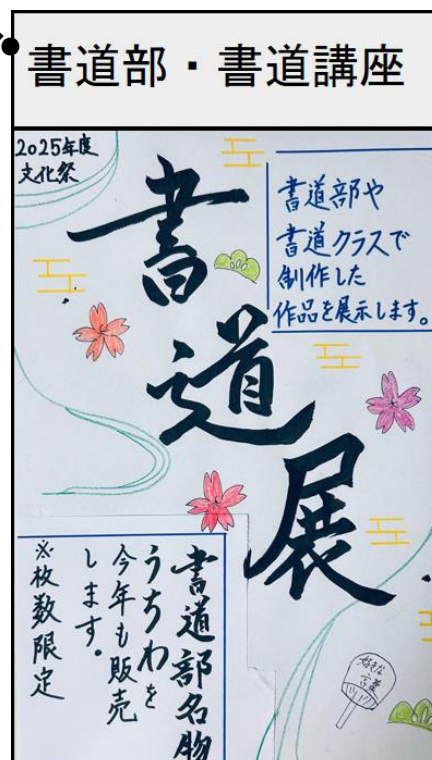 書道部・書道講座
2025年度
文化祭
書道展
書道部や
書道クラスで
制作した
作品を展示します。
書道部名物
うちわを
今年も販売
します。
※枚数限定
好きな
言葉